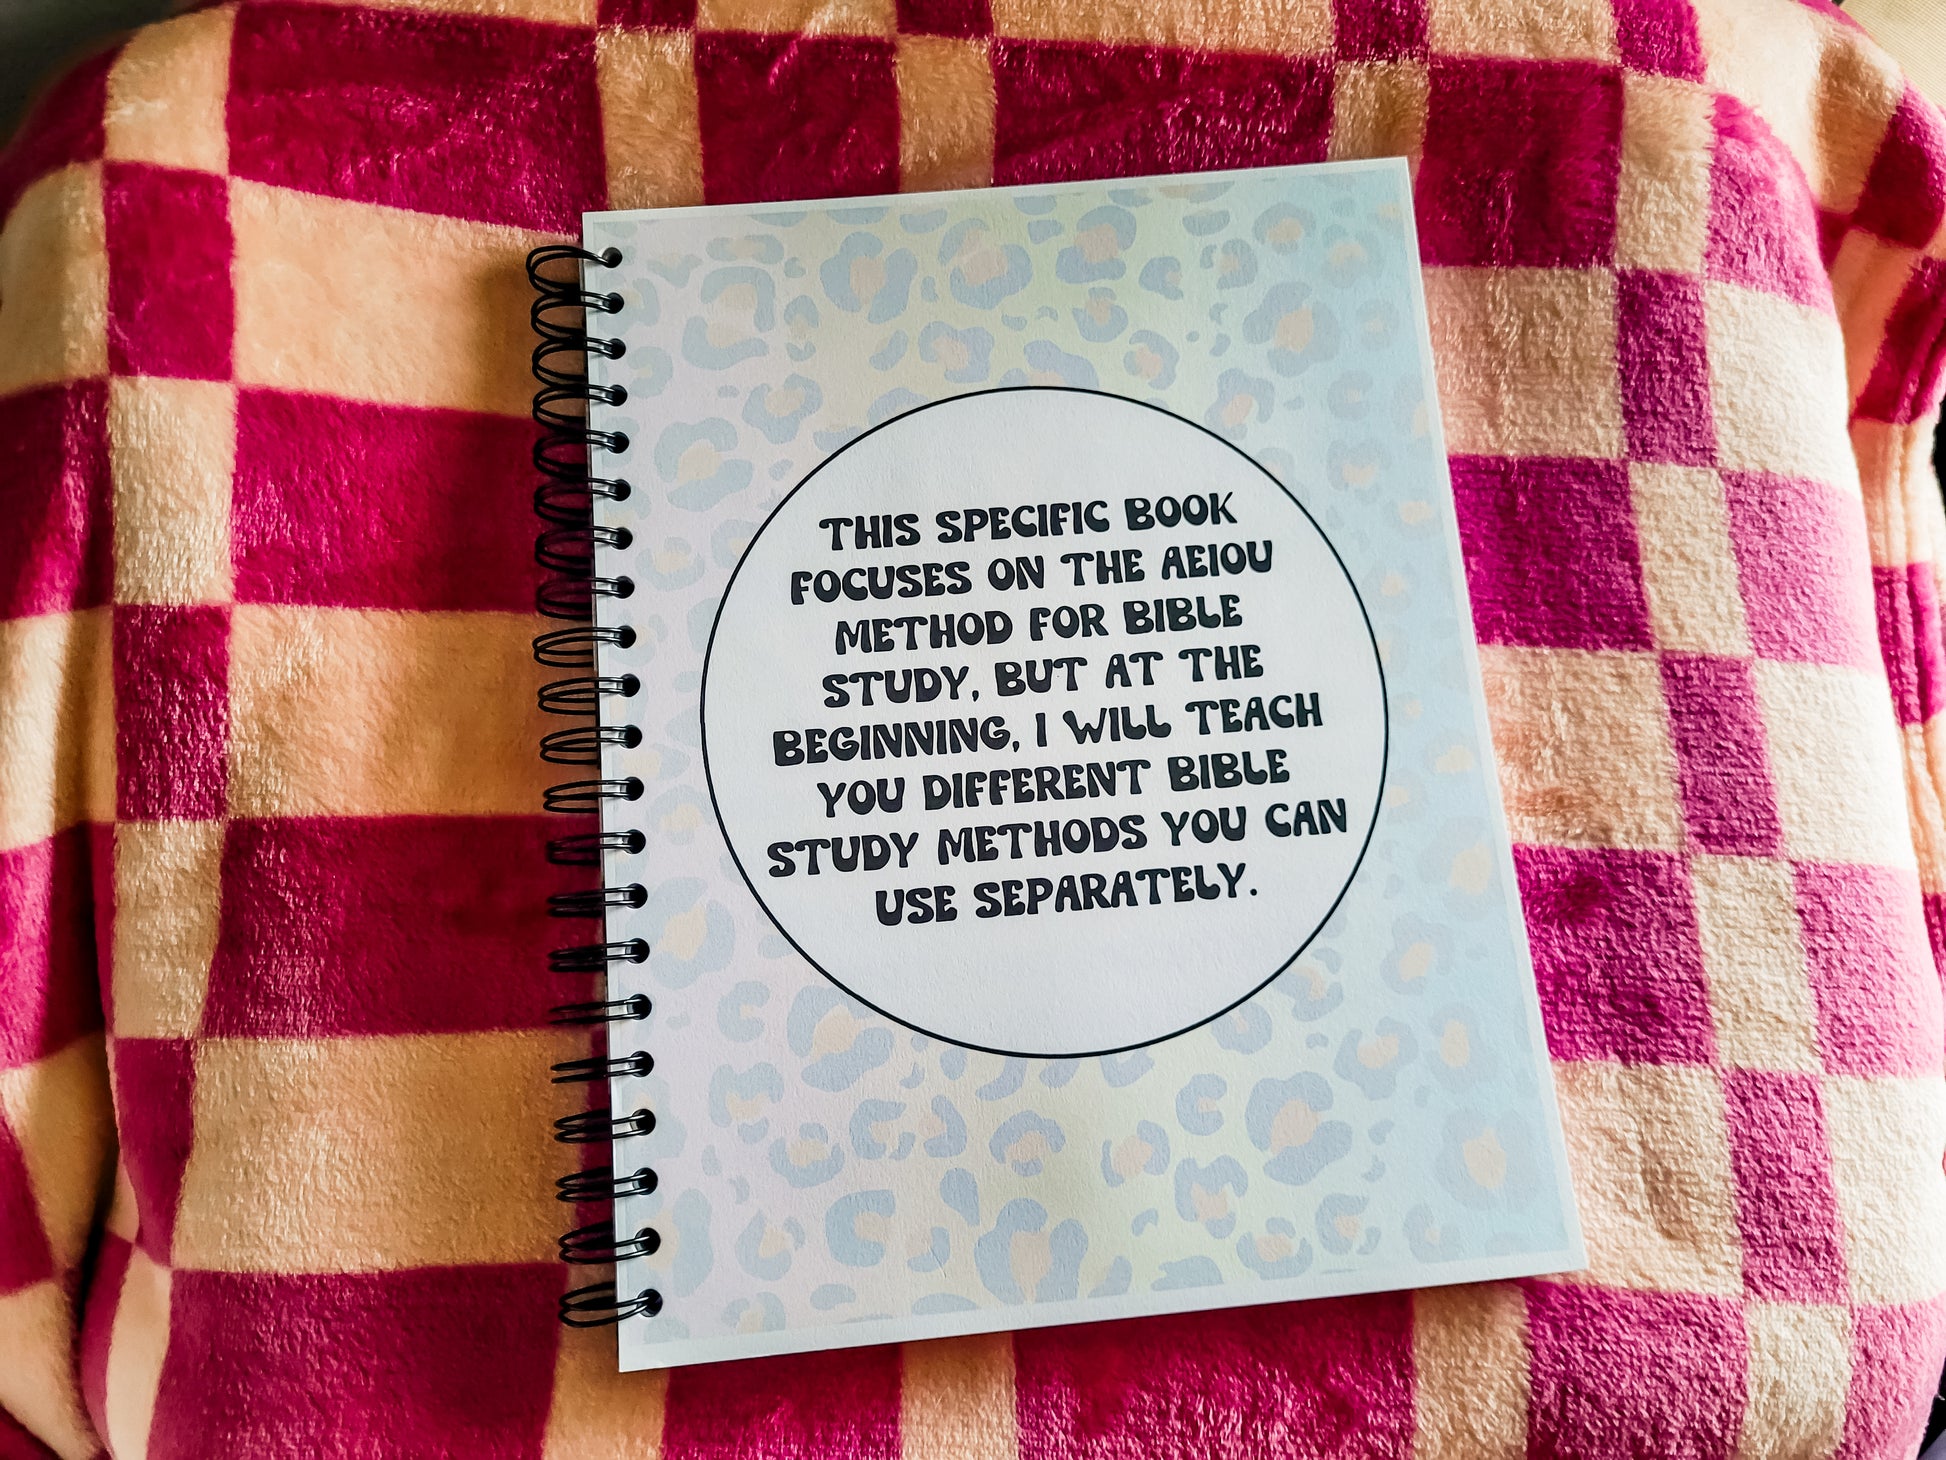 THIS SPECIFIC BOOK
FOCUSES ON THE AEIOU
METHOD FOR BIBLE
STUDY, BUT AT THE
BEGINNING, I WILL TEACH
YOU DIFFERENT BIBLE
STUDY METHODS YOU CAN
USE SEPARATELY.